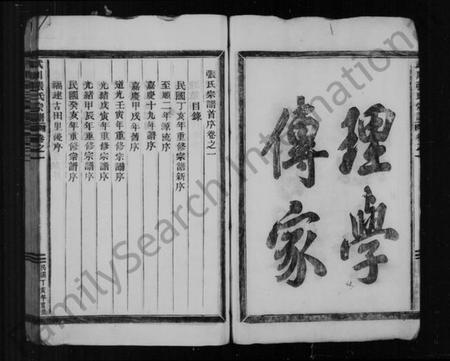 理學
傳家
張氏宗譜首序卷之一
目錄
民國丁亥年重修宗譜新序
至順二年源流序
嘉慶十九年譜序
嘉慶甲戌年舊序
道光壬寅年重修宗譜序
光緒戊寅年重修宗譜序
光緒甲辰年重修宗譜序
民國癸亥年重修宗譜序
福建古田里後序
民國丁亥年
FamilySearch International